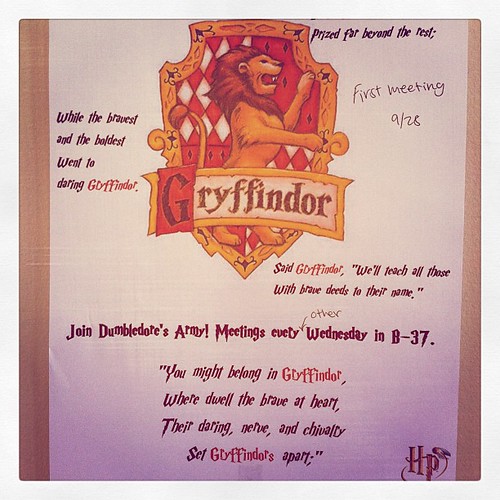 Prized far beyond the rest;
First meeting
9/28
While the bravest
and the boldest
Went to
daring Gryffindor.
Gryffindor
Said Gryffindor, "We'll teach all those
With brave deeds to their name."
other
Join Dumbledore's Army! Meetings every Wednesday in B-37.
"You might belong in Gryffindor,
Where dwell the brave at heart,
Their daring, nerve, and chivalry
Set Gryffindors apart;"
HP